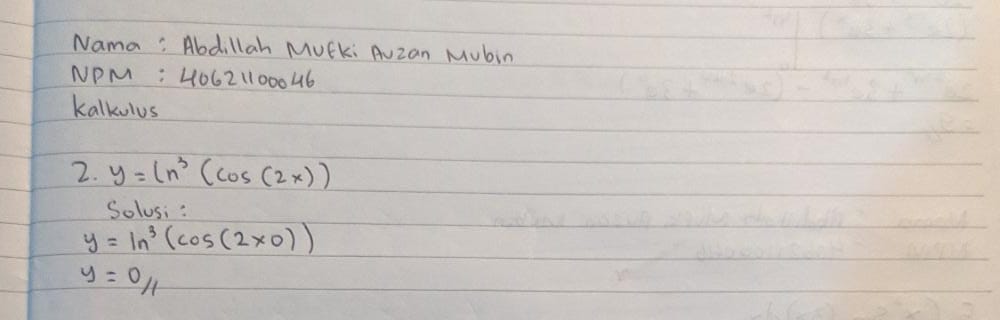 Nama : Abdillah Mufki Auzan Mubin
NPM : 40621100046
Kalkulus
2. y = ln³ (cos (2x))
Solusi :
y = ln³ (cos (2x0))
y = 0 //